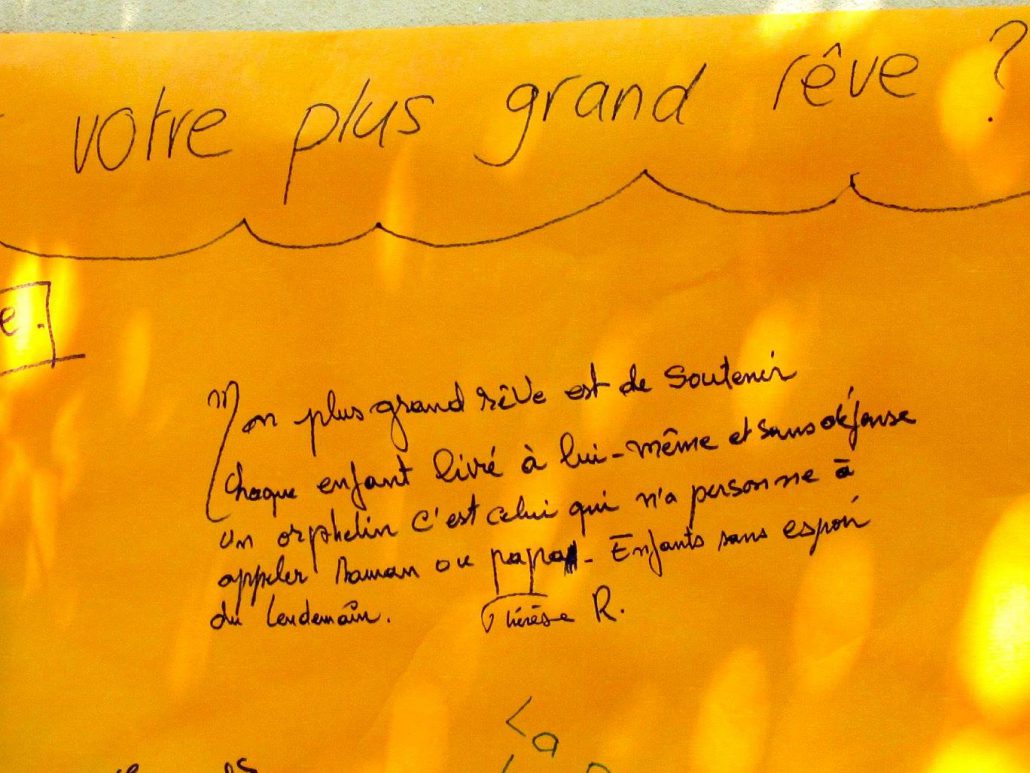 votre plus grand rêve ?
e.
Mon plus grand rêve est de soutenir
chaque enfant livré à lui-même et sans défense
un orphelin c'est celui qui n'a personne à
appeler Maman ou papa. Enfants sans espoir
du lendemain. Thérèse R.
La